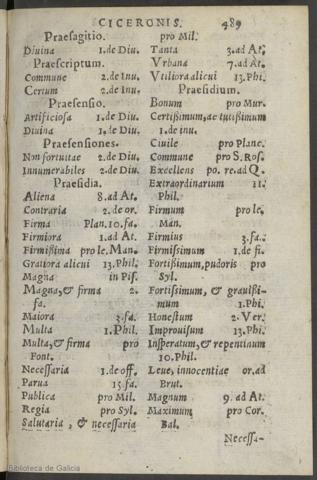 CICERONIS. 489
Praesagitio.
Diuina 1.de Diu.
Praescriptum.
Commune 2.de Inu.
Certum 2.de Inu.
Praesensio.
Artificiosa 1.de Diu.
Diuina 1.de Diu.
Praesensiones.
Non fortuitae 2.de Diu.
Innumerabiles 2.de Diu.
Praesidia.
Aliena 8.ad At.
Contraria 2.de or.
Firma Plan.10.fa.
Firmiora 1.ad At.
Firmißima pro le. Man.
Gratiora alicui 13.Phil.
Magna in Pis.
Magna, & firma 2.
fa.
Maiora 3.fa.
Multa 1.Phil.
Multa, & firma pro
Font.
Necessaria 1.de off.
Parua 15.fa.
Publica pro Mil.
Regia pro Syl.
Salutaria, & necessaria
pro Mil.
Tanta 3.ad At.
Vrbana 7.ad At.
Vtiliora alicui 13.Phi.
Praesidium.
Bonum pro Mur.
Certißimum, ac tutißimum
1.de inu.
Ciuile pro Planc.
Commune pro S.Ros.
Excellens po. re.ad Q.
Extraordinarium 11.
Phil.
Firmum pro le.
Man.
Firmius 3.fa.
Firmissimum 1.de fi.
Fortißimum, pudoris pro
Syl.
Fortissimum, & grauißi-
mum 1.Phi.
Honestum 2.Ver.
Improuisum 13.Phi.
Insperatum, & repentinum
10.Phil.
Leue, innocentiae or.ad
Brut.
Magnum 9.ad At.
Maximum pro Cor.
Bal.
Necessa-
Biblioteca de Galicia